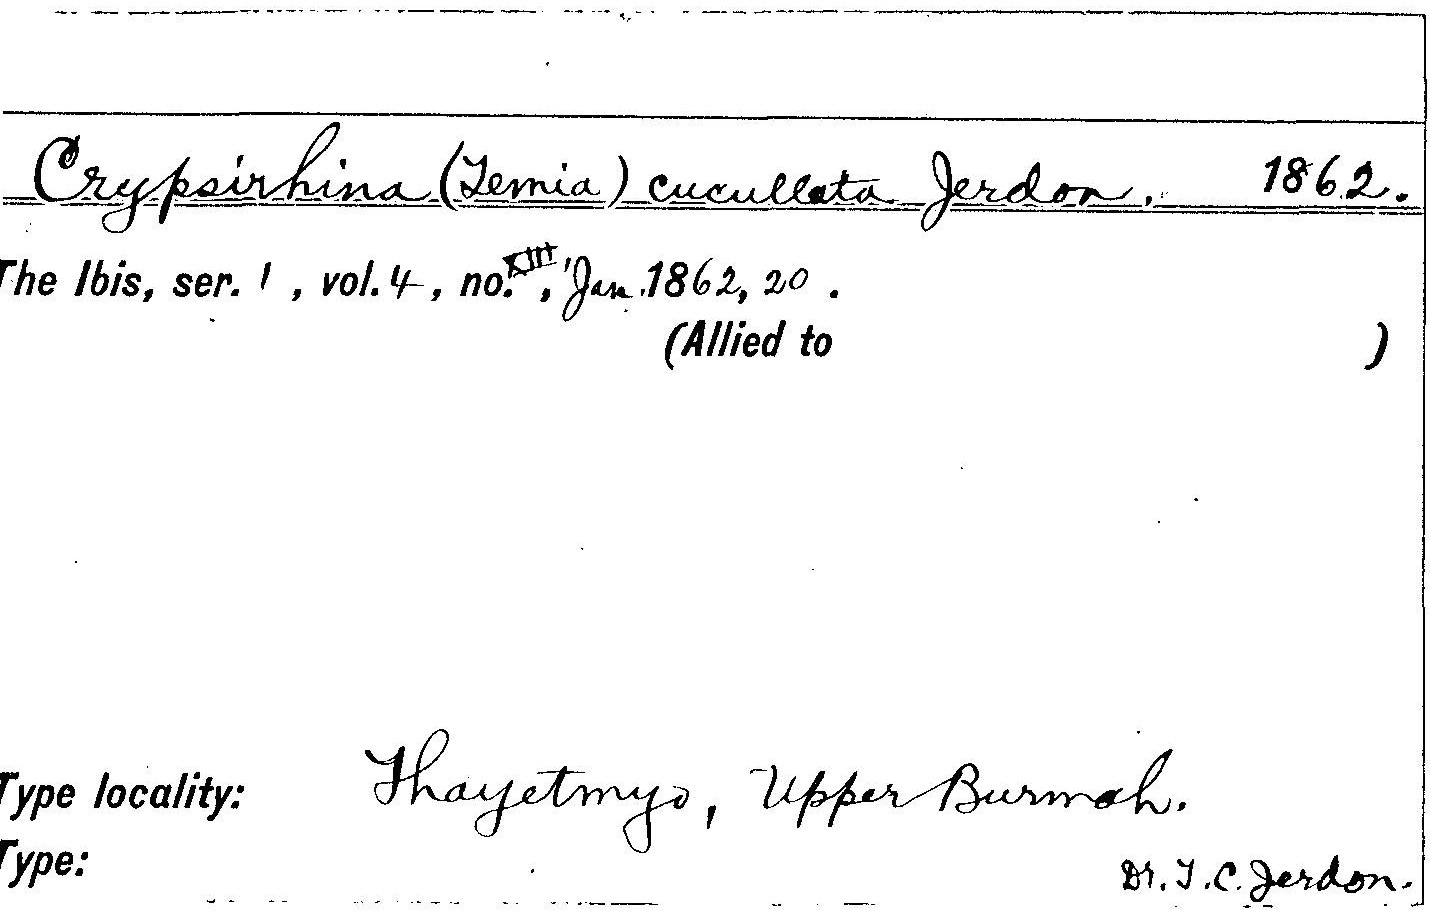 Crypsirhina (Temia) cucullata Jerdon. 1862.
The Ibis, ser. 1, vol. 4, no. XIII, Jan. 1862, 20.
(Allied to )
Type locality: Thayetmyo, Upper Burmah.
Type:
Dr. T. C. Jerdon.